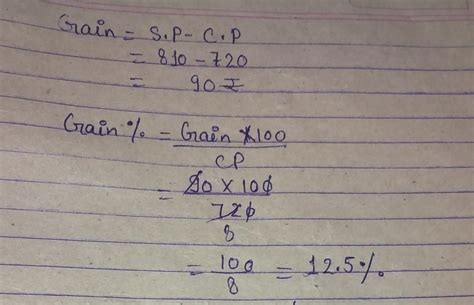 Grain = S.P - C.P
= 810 - 720
= 90 ₹
Grain % = Grain × 100
CP
= 90 × 100
720
8
= 100 = 12.5 %
8